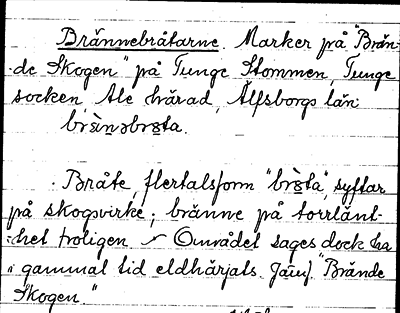 Brännebråtarne. Marker på "Brän-
de Skogen" på Tunge Stommen, Tunge
socken, Ale härad, Älfsborgs län
Bråte, flertalsform "brɔ̀ta", syftar
på skogsvirke; bränne på torrlänt-
het troligen. – Området sages dock ha
i gammal tid eldhärjats. Jämf. "Brände
Skogen."